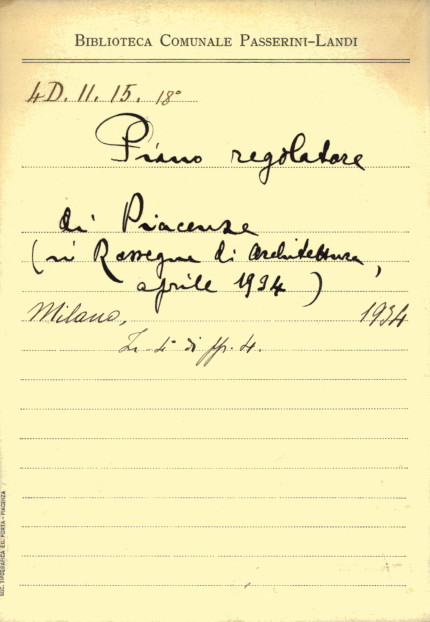 BIBLIOTECA COMUNALE PASSERINI-LANDI
4D. II. 15. 18°
Piano regolatore
di Piacenza
(in Rassegna di Architettura,
aprile 1934)
Milano, 1934
In-4° di pp. 4.
SOC. TIPOGRAFICA ED. PORTA - PIACENZA